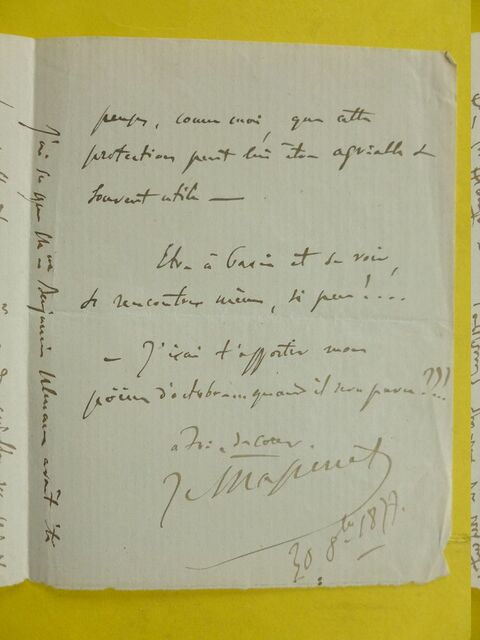 penses, comme moi, que cette
protection peut lui être agréable &
souvent utile —
Etre à Paris et se voir,
se rencontrer même, si peu!....
— J'irai t'apporter mon
poëme d'octobre quand il sera paru???
a toi, de cœur.
J. Massenet
30 8bre 1877.
J'ai su que Mme Benjamin Ulmann avait été